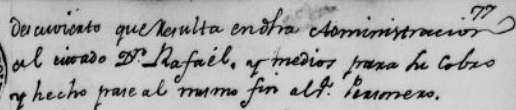 77
descuvierto que Resulta en dha Administracion
al citado Dn. Rafaél, y medios para su Cobro
y hecho pase al mismo fin al Sr. Personero.